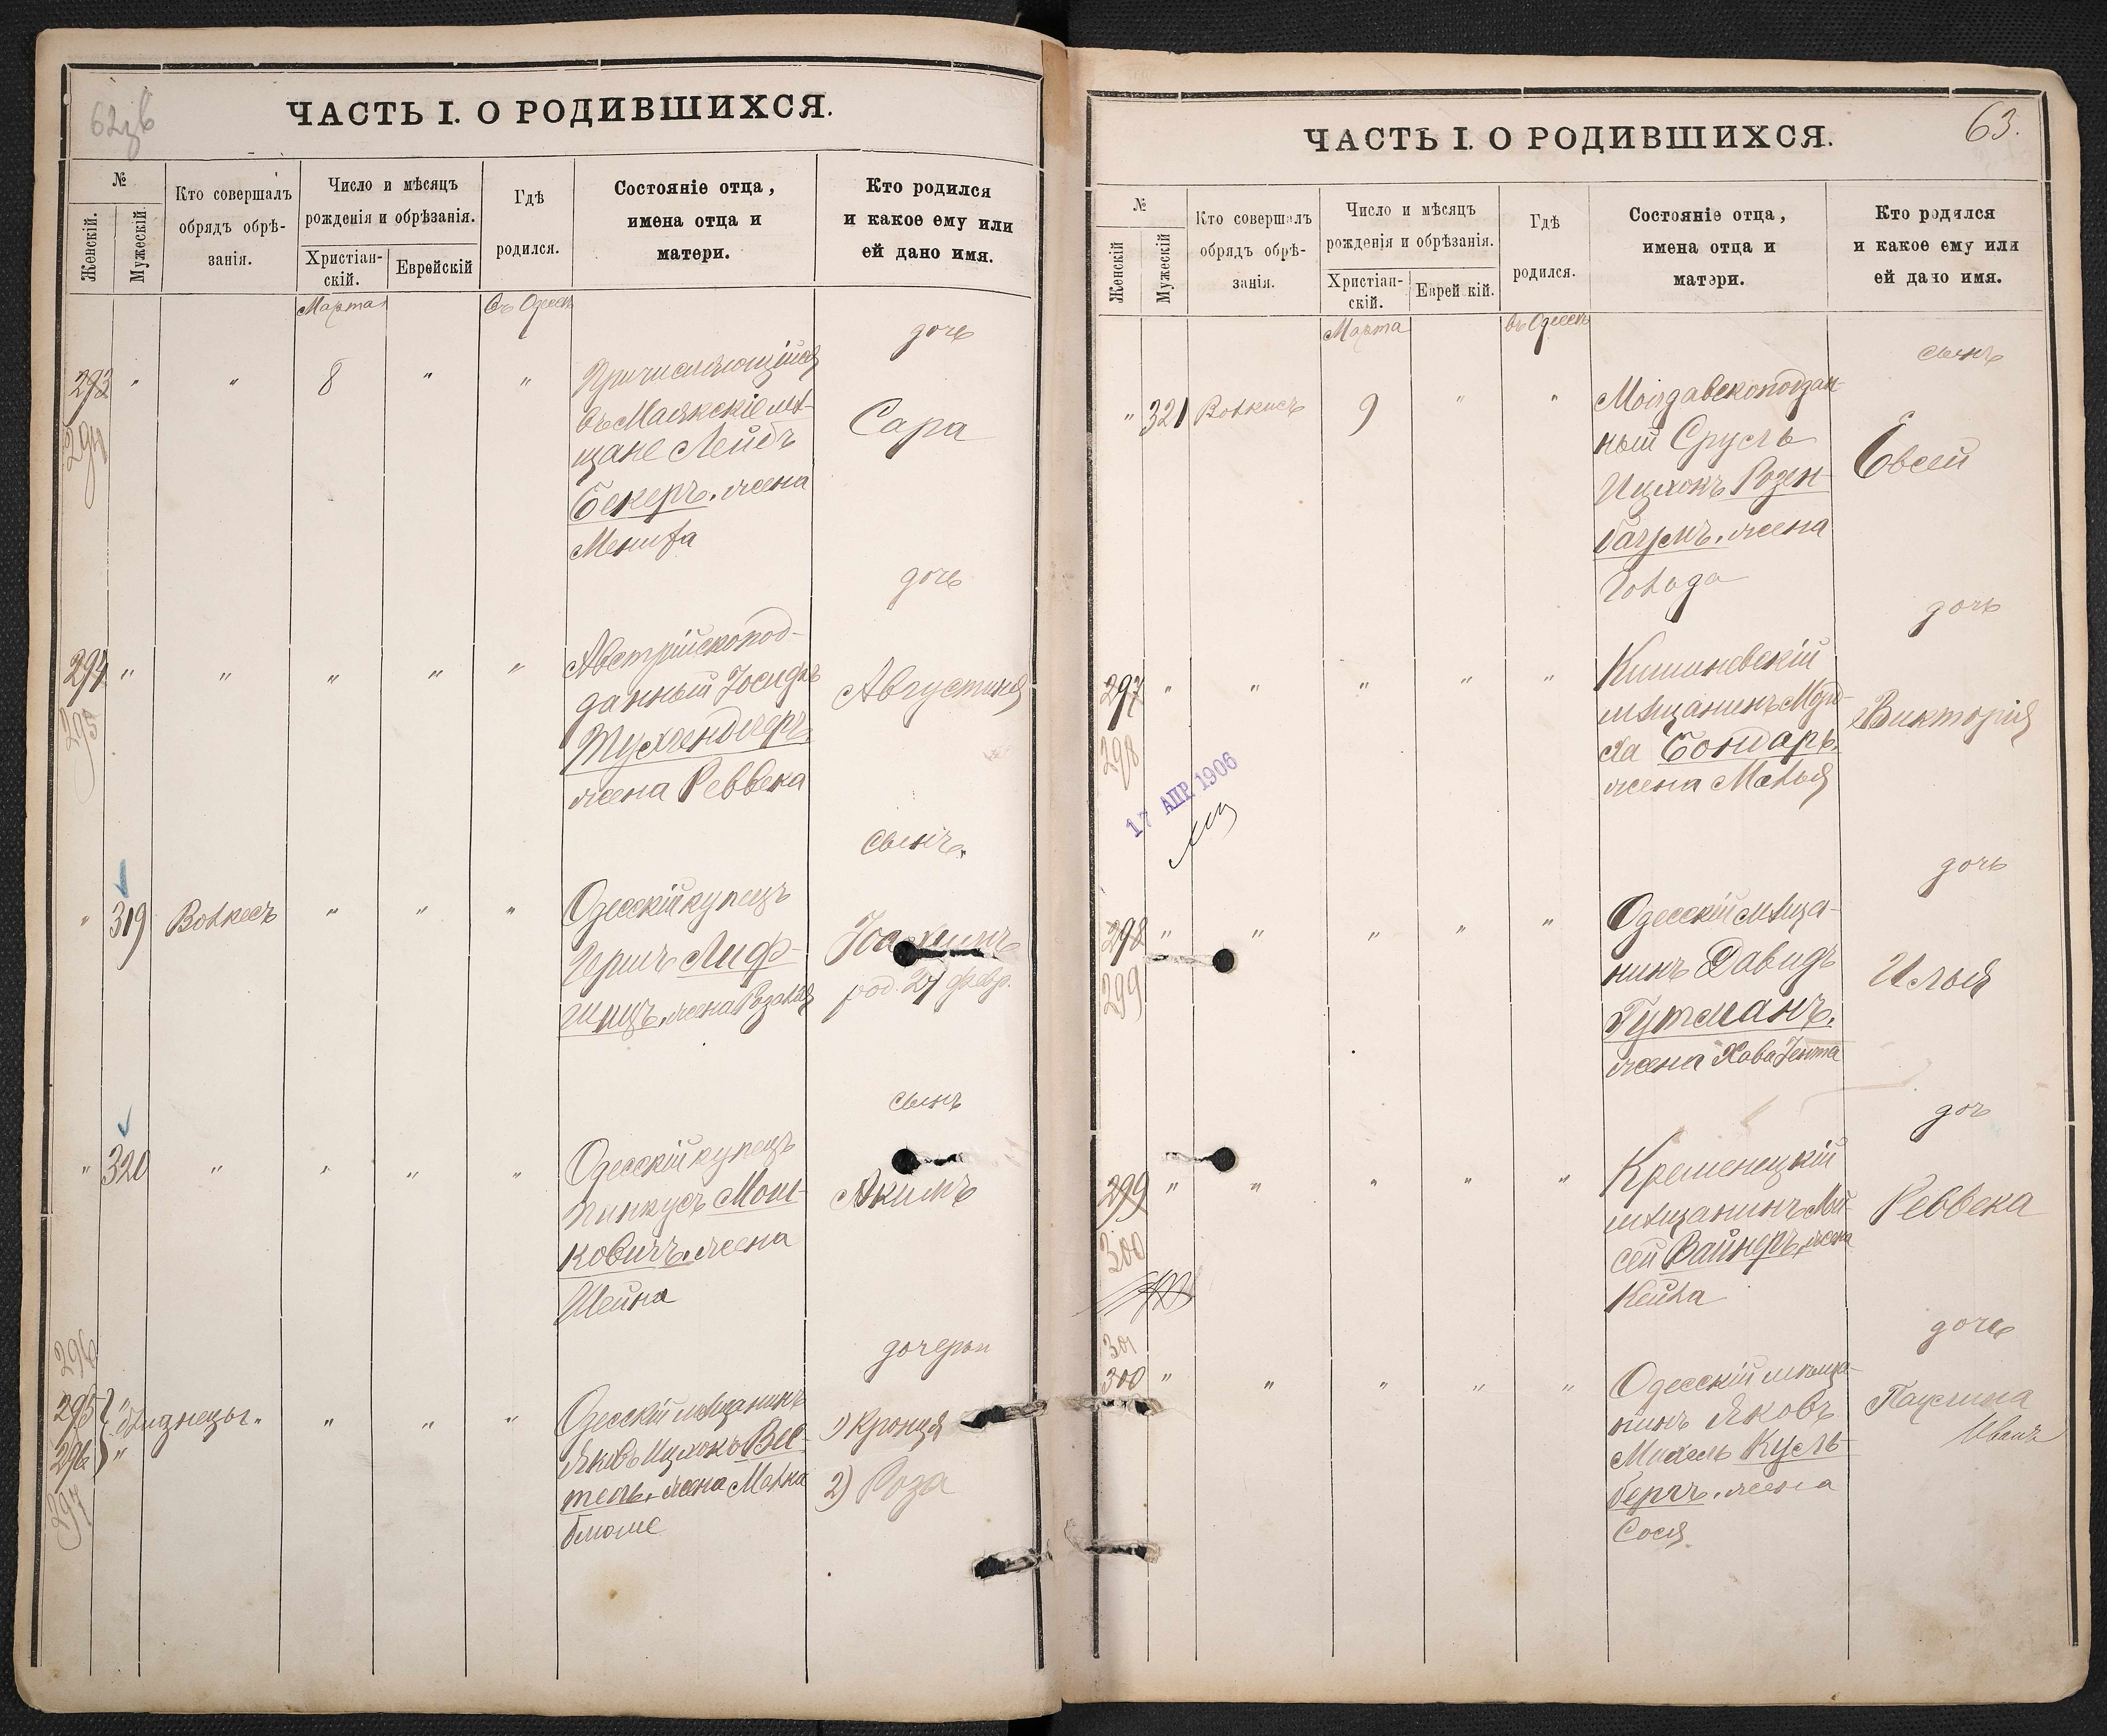 ЧАСТЬ I. О РОДИВШИХСЯ.
№
Женскій.
Мужескій.
Кто совершалъ
обрядъ обрѣ-
занія.
Число и мѣсяцъ
рожденія и обрѣзанія.
Христіан-
скій.
Еврейскій
Гдѣ
родился.
Состояніе отца,
имена отца и
матери.
Кто родился
и какое ему или
ей дано имя.
Марта
въ Одессѣ
293 " " 8 " "
294
Причисляющійся
въ Маякскіе мѣ-
щане Лейбъ
Бекеръ, жена
дочь
Сара
294 " " " " "
295
Австрійскопод-
данный Іосифъ
жена Реввека
дочь
Августина
" 319 " " "
Одесскій купецъ
Гершъ Лиф-
шицъ, жена Розалія
сынъ
род. 27 февр.
" 320 " " " "
Одесскій купецъ
Пинкусъ Мош-
ковичъ, жена
Шейна
сынъ
Акимъ
296
295 "
296 "
297
близнецы " " "
Одесскій мѣщанинъ
Яковъ Ицхокъ Вес-
тель, жена Малка
Блюме
дочери
1)
2) Роза
63.
ЧАСТЬ I. О РОДИВШИХСЯ.
№
Женскій
Мужескій
Кто совершалъ
обрядъ обрѣ-
занія.
Число и мѣсяцъ
рожденія и обрѣзанія.
Христіан-
скій.
Еврейскій.
Гдѣ
родился.
Состояніе отца,
имена отца и
матери.
Кто родился
и какое ему или
ей дано имя.
Марта " въ Одессѣ
" 321 9 " "
Молдавскоподдан-
ный Сруль
Ицхокъ Розен-
баумъ, жена
Голда
сынъ
Евсей
297 " " " " "
298
17 АПР 1906
Кишиневскій
мѣщанинъ Морд-
ха Бондарь,
жена Малья
дочь
Викторія
298 " " " " "
299
Одесскій мѣща-
нинъ Давидъ
Гутманъ,
жена Хава Гента
дочь
Илья
299 " " " " "
300
Кременецкій
мѣщанинъ Мой-
сей Вайнеръ, жена
Кейла
дочь
Реввека
301
300 " " " " "
Одесскій мѣща-
нинъ Яковъ
Михель Кусль-
бергъ, жена
Сося
дочь
Паулина